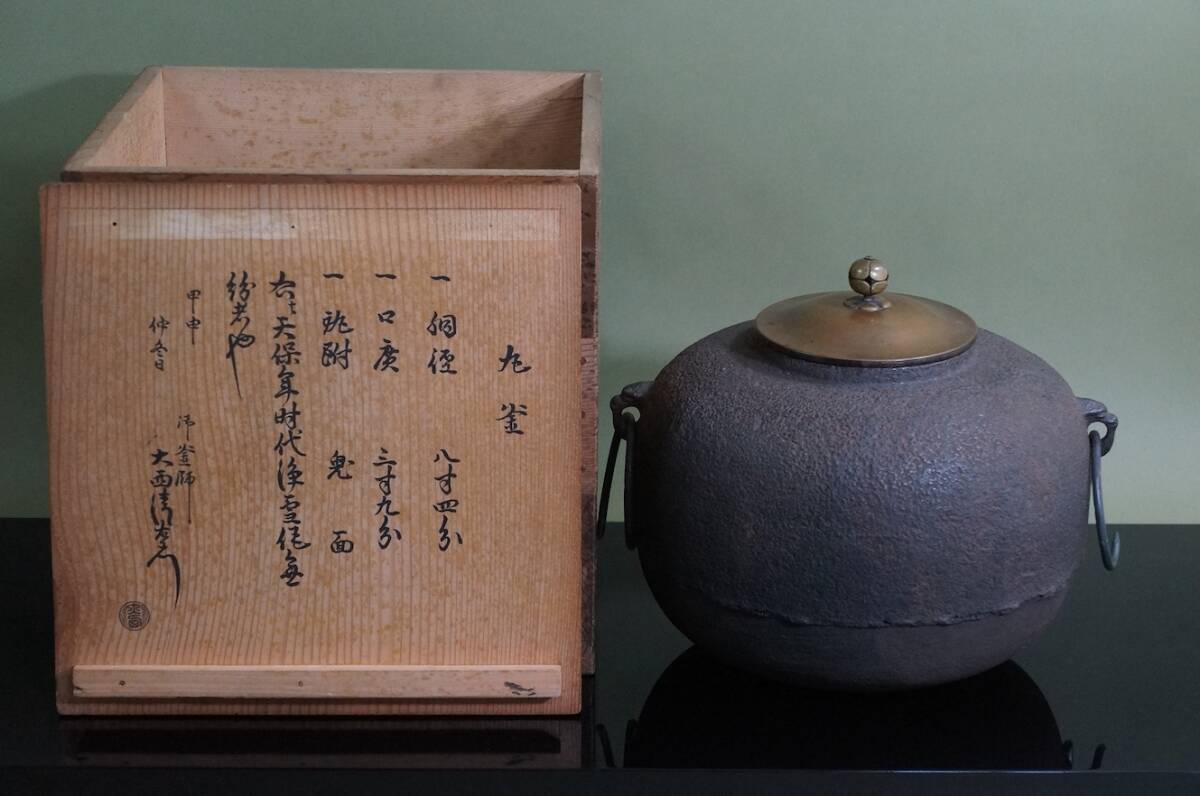 丸釜
一 胴径 八寸四分
一 口広 三寸九分
一 鐶附 鬼面
右者天保年时代浄雪作無
紛者也
甲申
仲冬日
御釜師
大西清右衛門